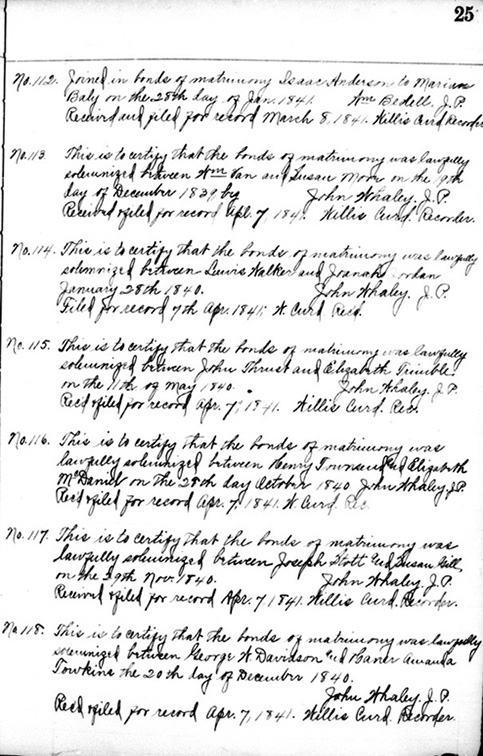 25
No. 112. Joined in bonds of matrimony Isaac Anderson to Marian
Baly on the 28th day of Jan. 1841. Wm Bedell. J.P.
Received and filed for record March 8. 1841. Willis Curd Recorder
No. 113 This is to certify that the bonds of matrimony was lawfully
solemnized between Wm Van and Susan Moor on the 19th
day of December 1839 by John Whaley. J.P.
Received & filed for record Apl. 7 1841 Willis Curd. Recorder.
No. 114. This is to certify that the bonds of matrimony was lawfully
solemnized between Lewis Walker and
January 28th 1840. John Whaley. J.P.
Filed for record 7th Apr. 1841, W. Curd Rec.
No. 115. This is to certify that the bonds of matrimony was lawfully
solemnized between John Thrust and Elizabeth Trimble
on the 11th of May 1840. John Whaley. J.P.
Recd & filed for record Apr. 7, 1841. Willis Curd. Rec.
No. 116. This is to certify that the bonds of matrimony was
lawfully solemnized between Henry Townsend and Elizabeth
McDaniel on the 28th day October 1840 John Whaley. J.P.
Recd & filed for record Apr. 7. 1841. W. Curd Rec
No. 117. This is to certify that the bonds of matrimony was
lawfully solemnized between Joseph Stott and Susan Gill
on the 29th Novr 1840. John Whaley. J.P.
Received & filed for record Apr. 7 1841. Willis Curd. Recorder.
No 118. This is to certify that the bonds of matrimony was lawfully
solemnized between George W Davidson and Haner Amanda
Towkins the 20th day of December 1840.
John Whaley. J.P.
Recd & filed for record Apr. 7, 1841. Willis Curd. Recorder